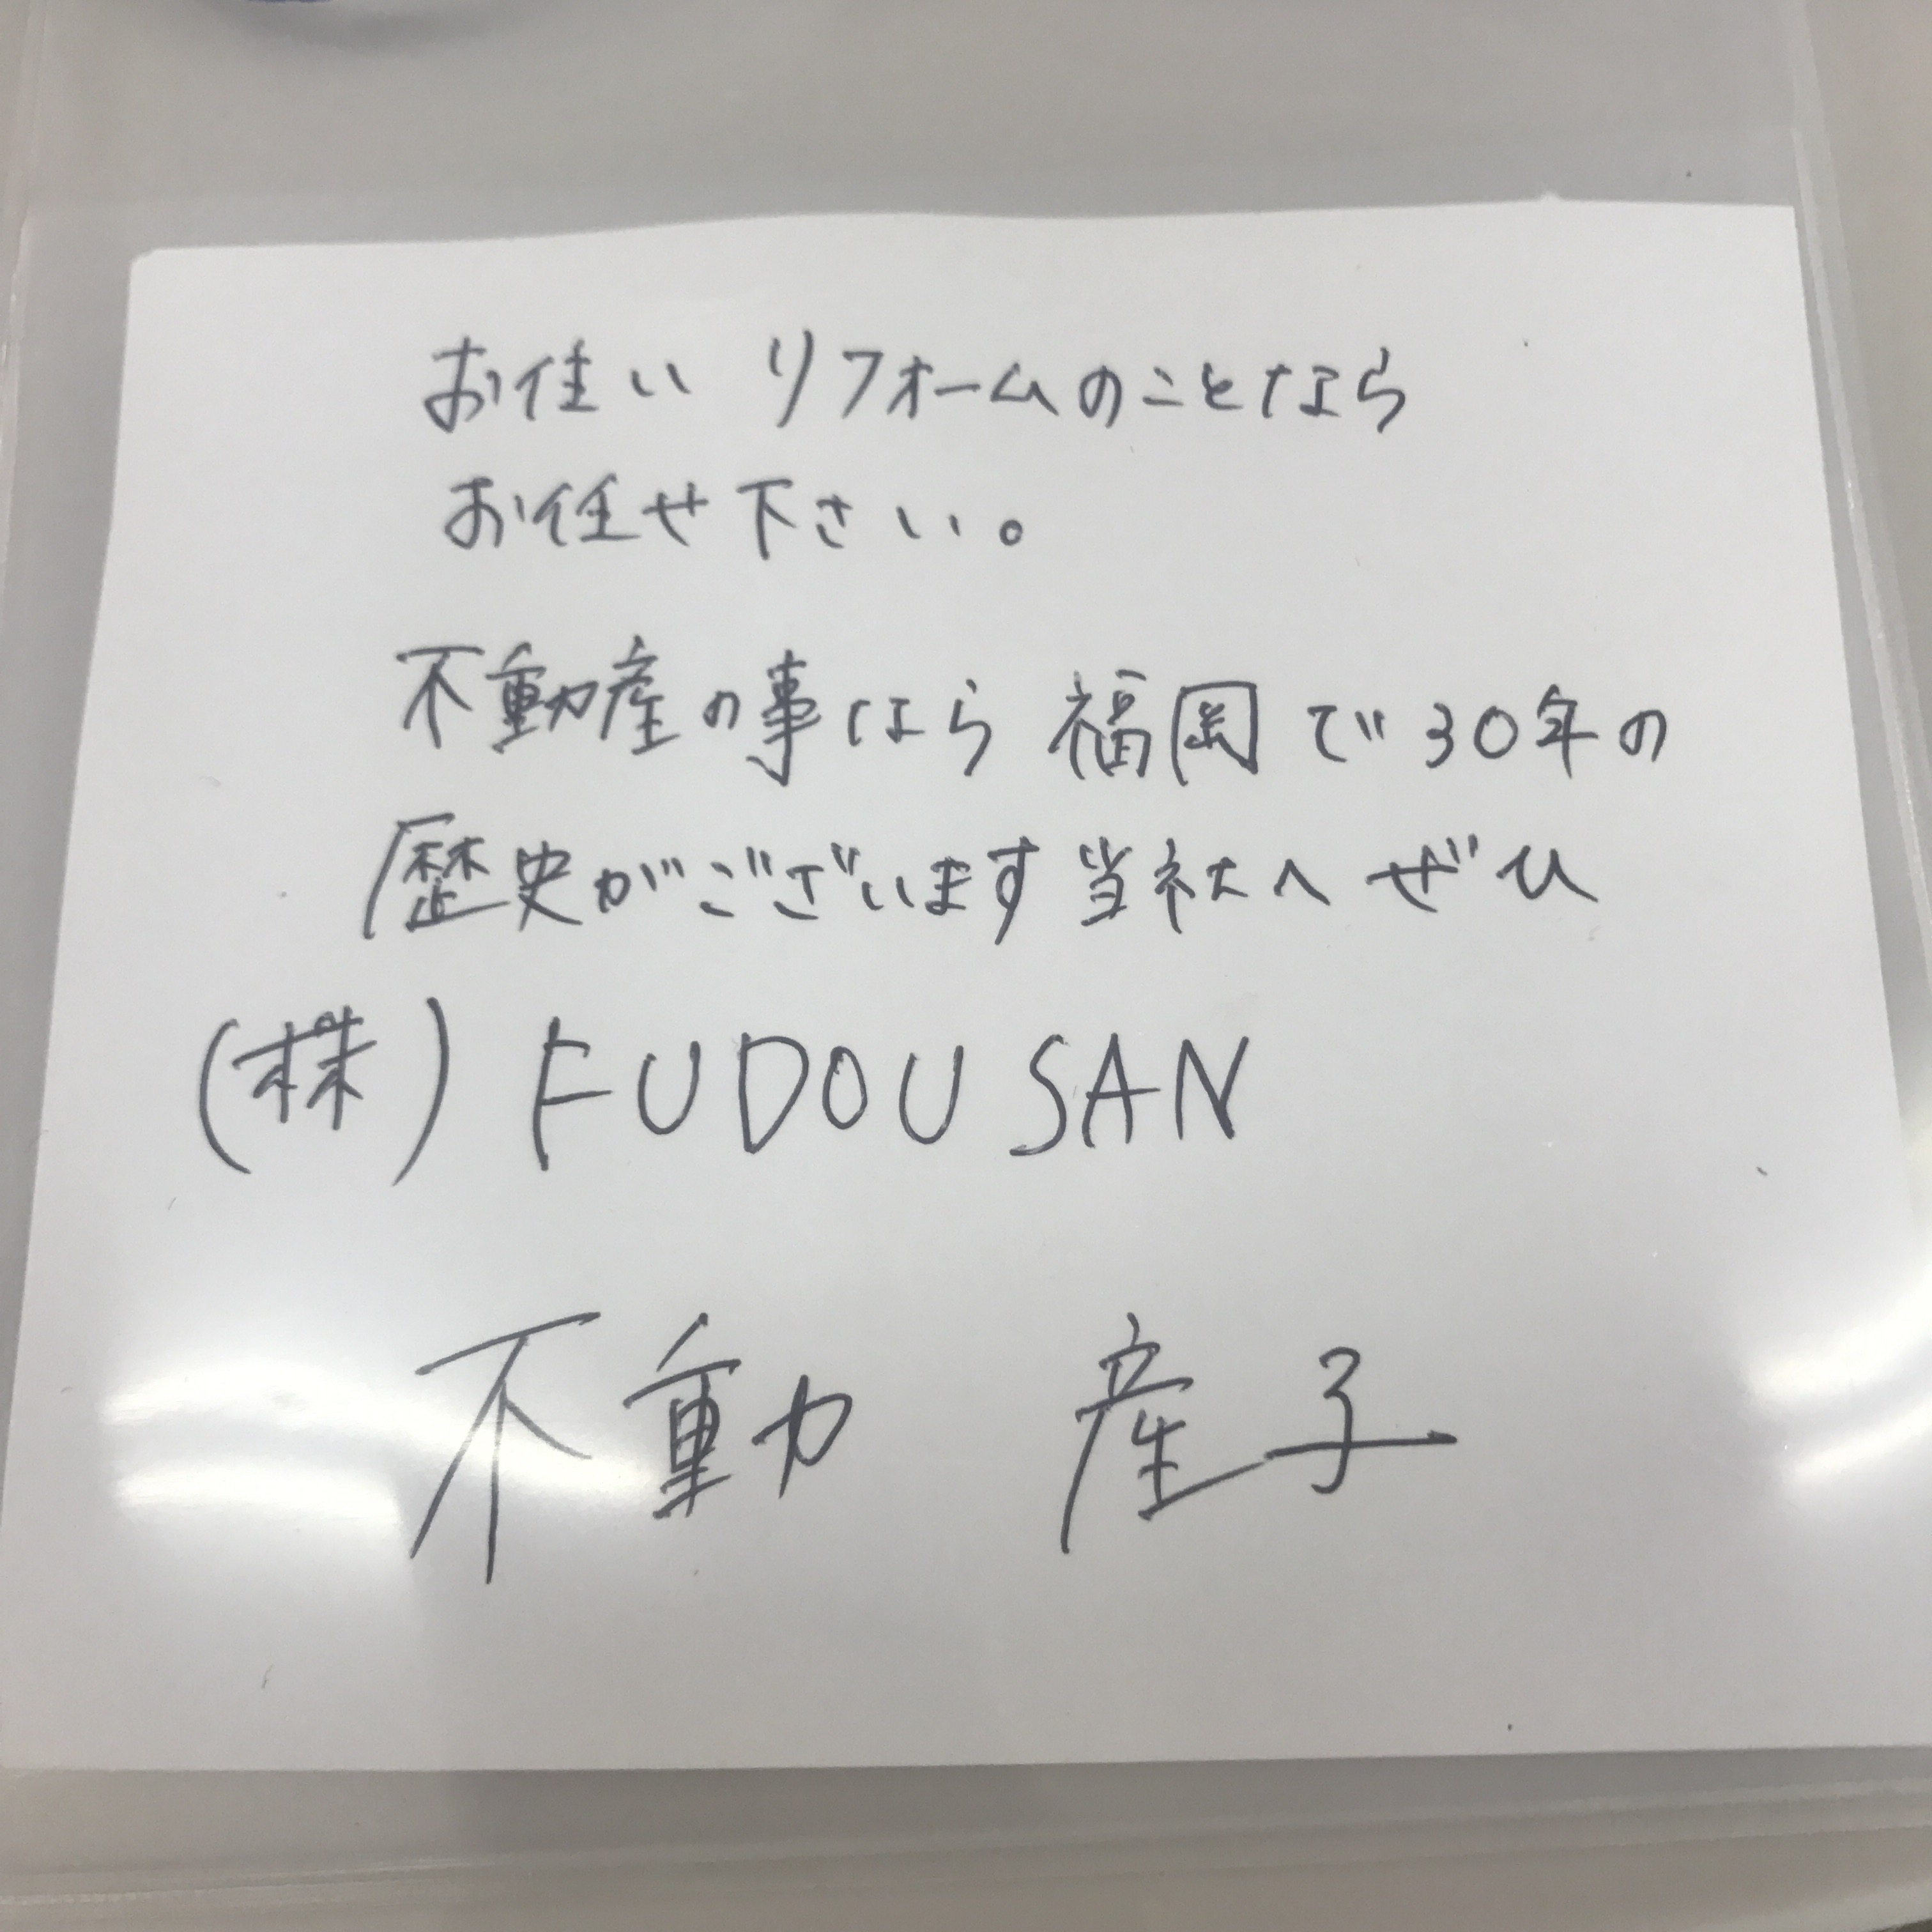 お住い リフォームのことなら
お任せ下さい。
不動産の事なら 福岡で30年の
歴史がございます当社へ ぜひ
(株) FUDOUSAN
不動 産子